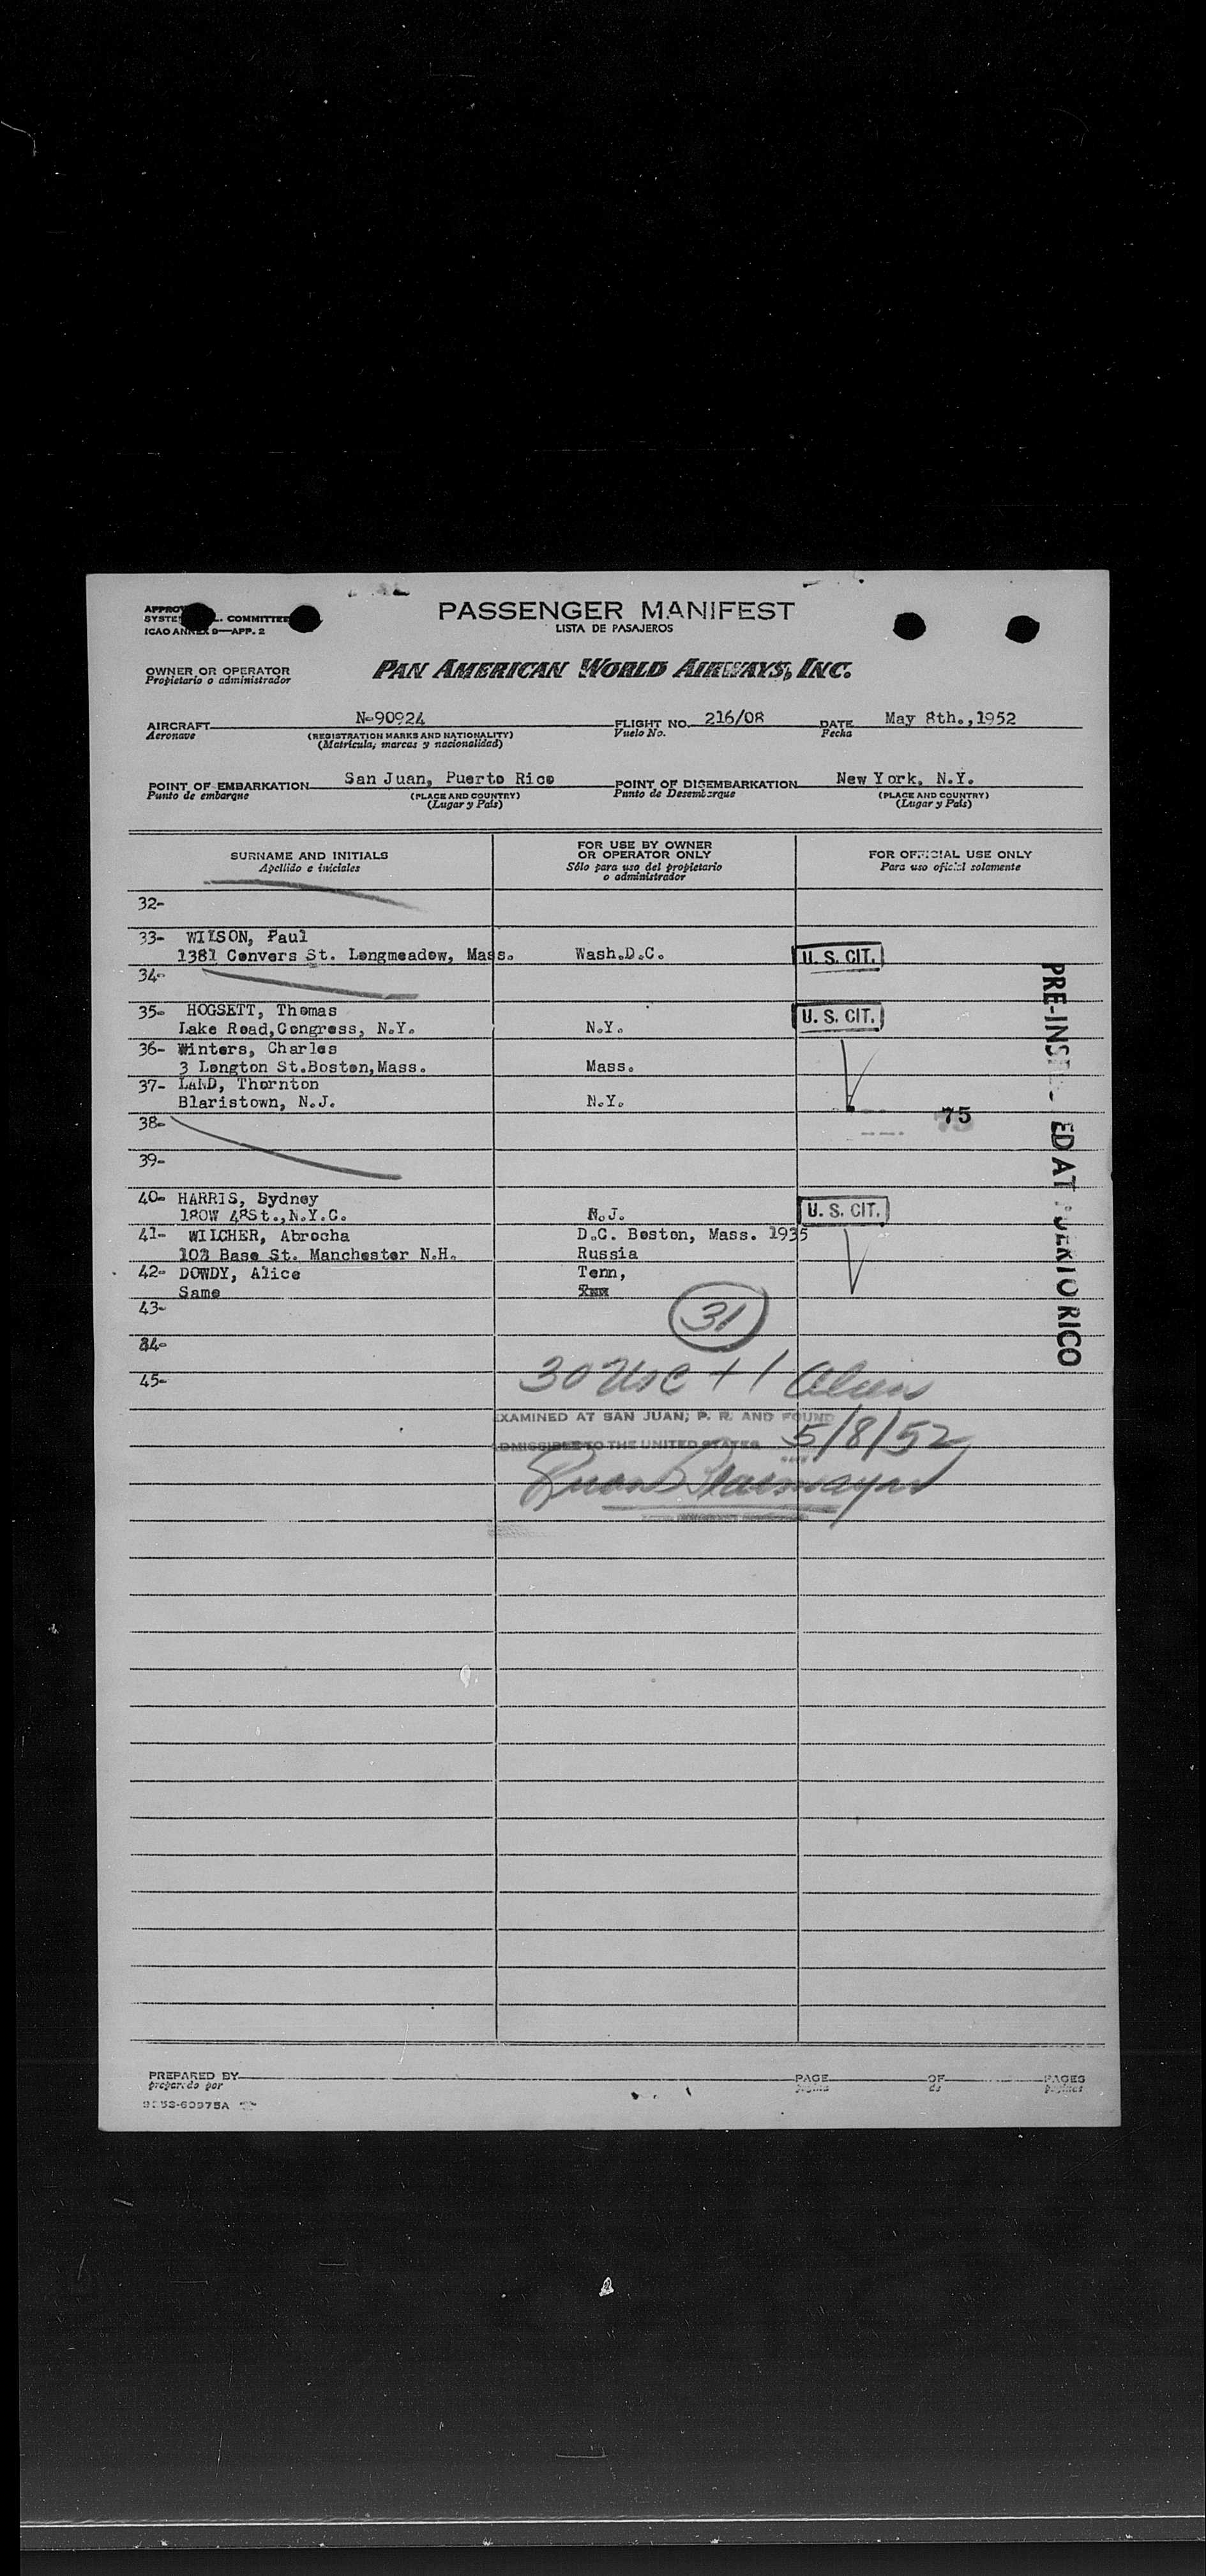 PASSENGER MANIFEST
LISTA DE PASAJEROS
L. COMMITTEE
ICAO ANNEX 9—APP. 2
OWNER OR OPERATOR
Propietario o administrador
PAN AMERICAN WORLD AIRWAYS, INC.
AIRCRAFT N-90924 FLIGHT NO. 216/08 DATE May 8th.,1952
Aeronave (REGISTRATION MARKS AND NATIONALITY) Vuelo No. Fecha
(Matrícula, marcas y nacionalidad)
POINT OF EMBARKATION San Juan, Puerto Rico POINT OF DISEMBARKATION New York, N.Y.
Punto de embarque (PLACE AND COUNTRY) Punto de Desembarque (PLACE AND COUNTRY)
(Lugar y País) (Lugar y País)
SURNAME AND INITIALS
Apellido e iniciales
FOR USE BY OWNER
OR OPERATOR ONLY
Sólo para uso del propietario
o administrador
FOR OFFICIAL USE ONLY
Para uso oficial solamente
32-
33- WILSON, Paul
1381 Convers St. Longmeadow, Mass. Wash.D.C. U. S. CIT.
34-
35- HOGSETT, Thomas U. S. CIT.
Lake Road,Congress, N.Y. N.Y.
36- Winters, Charles
3 Longton St.Boston,Mass. Mass.
37- LAND, Thornton
Blaristown, N.J. N.Y.
38- 75
39-
40- HARRIS, Sydney U. S. CIT.
180W 48St.,N.Y.C. N.J.
41- WILCHER, Abrocha D.C. Boston, Mass. 1935
103 Base St. Manchester N.H. Russia
42- DOWDY, Alice Tenn,
Same
43-
44-
45-
31
30 USC + 1 Alien
EXAMINED AT SAN JUAN, P. R. AND FOUND
ADMISSIBLE TO THE UNITED STATES 5/8/52
PRE-INSP ED AT PUERTO RICO
PREPARED BY PAGE OF PAGES
preparado por página de páginas